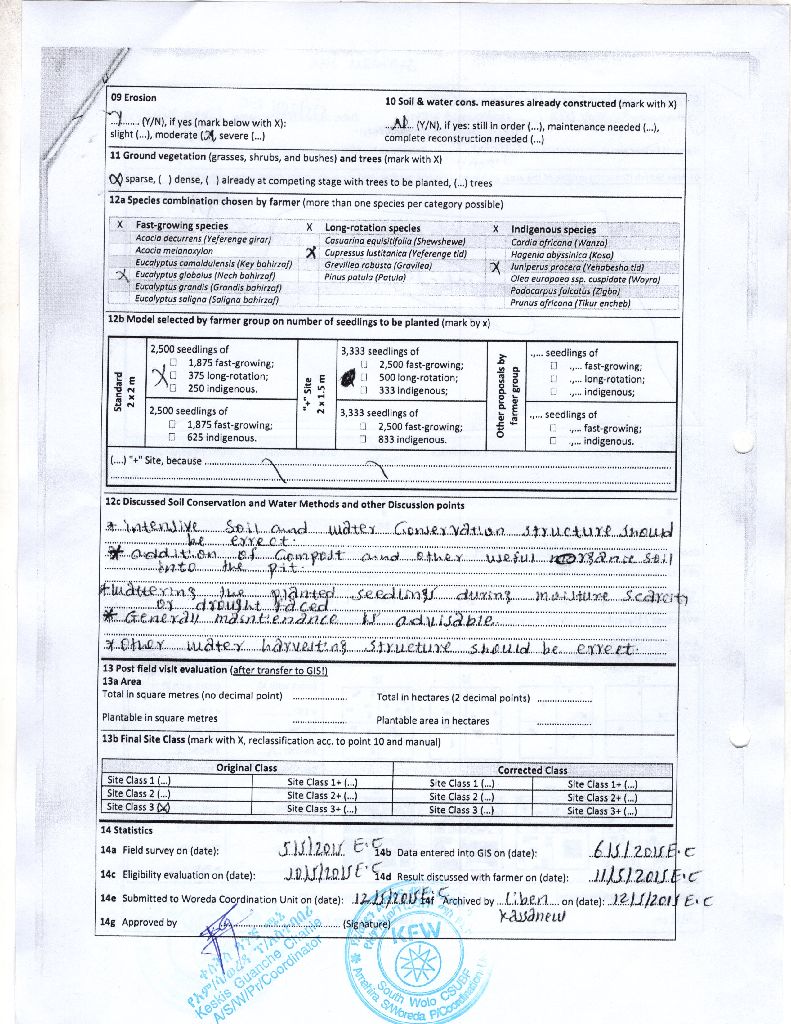 09 Erosion
10 Soil & water cons. measures already constructed (mark with X)
..Y..... (Y/N), if yes (mark below with X):
slight (...), moderate (X), severe (...)
...N... (Y/N), if yes: still in order (...), maintenance needed (...),
complete reconstruction needed (...)
11 Ground vegetation (grasses, shrubs, and bushes) and trees (mark with X)
(X) sparse, ( ) dense, ( ) already at competing stage with trees to be planted, (...) trees
12a Species combination chosen by farmer (more than one species per category possible)
X Fast-growing species
Acacia decurrens (Yeferenge girar)
Acacia melanoxylon
Eucalyptus camaldulensis (Key bahirzaf)
X Eucalyptus globolus (Nech bahirzaf)
Eucalyptus grandis (Grandis bahirzaf)
Eucalyptus saligna (Saligna bahirzaf)
X Long-rotation species
Casuarina equisitifolia (Shewshewe)
X Cupressus lustitanica (Yeferenge tid)
Grevillea robusta (Gravilea)
Pinus patula (Patula)
X Indigenous species
Cordia africana (Wanza)
Hagenia abyssinica (Kosa)
X Juniperus procera (Yehabesha tid)
Olea europaea ssp. cuspidate (Wayra)
Podocarpus falcatus (Zigba)
Prunus africana (Tikur encheb)
12b Model selected by farmer group on number of seedlings to be planted (mark by x)
Standard
2 x 2 m
2,500 seedlings of
1,875 fast-growing;
X 375 long-rotation;
250 indigenous.
2,500 seedlings of
1,875 fast-growing;
625 indigenous.
"+" Site
2 x 1.5 m
3,333 seedlings of
2,500 fast-growing;
500 long-rotation;
333 indigenous;
3,333 seedlings of
2,500 fast-growing;
833 indigenous.
Other proposals by
farmer group
.,... seedlings of
.,... fast-growing;
.,... long-rotation;
.,... indigenous;
.,... seedlings of
.,... fast-growing;
.,... indigenous.
(....) "+" Site, because
12c Discussed Soil Conservation and Water Methods and other Discussion points
* intensive Soil and water Conservation structure should
be errect.
* addition of Compost and other useful organic soil
into the pit.
* wattering the planted seedlings during moisture scarcity
or drought faced
* Generally maintienance is advisable
* Other water harvesting structure should be errect.
13 Post field visit evaluation (after transfer to GIS!)
13a Area
Total in square metres (no decimal point) ..................
Total in hectares (2 decimal points) ..................
Plantable in square metres ..................
Plantable area in hectares ..................
13b Final Site Class (mark with X, reclassification acc. to point 10 and manual)
Original Class
Corrected Class
Site Class 1 (...) Site Class 1+ (...) Site Class 1 (...) Site Class 1+ (...)
Site Class 2 (...) Site Class 2+ (...) Site Class 2 (...) Site Class 2+ (...)
Site Class 3 (X) Site Class 3+ (...) Site Class 3 (...) Site Class 3+ (...)
14 Statistics
14a Field survey on (date): 5/5/2015 E.C 14b Data entered into GIS on (date): 6/5/2015 E.C
14c Eligibility evaluation on (date): 10/5/2015 E.C 14d Result discussed with farmer on (date): 11/5/2015 E.C
14e Submitted to Woreda Coordination Unit on (date): 12/5/2015 E.C 14f Archived by Liben on (date): 12/5/2015 E.C
Kassanew
14g Approved by (Signature)
Keskis Guanche Chanie
A/S/W/Pr/Coordinator
KFW
South Wolo CSUBF
Amhara S/Woreda P/Coordination